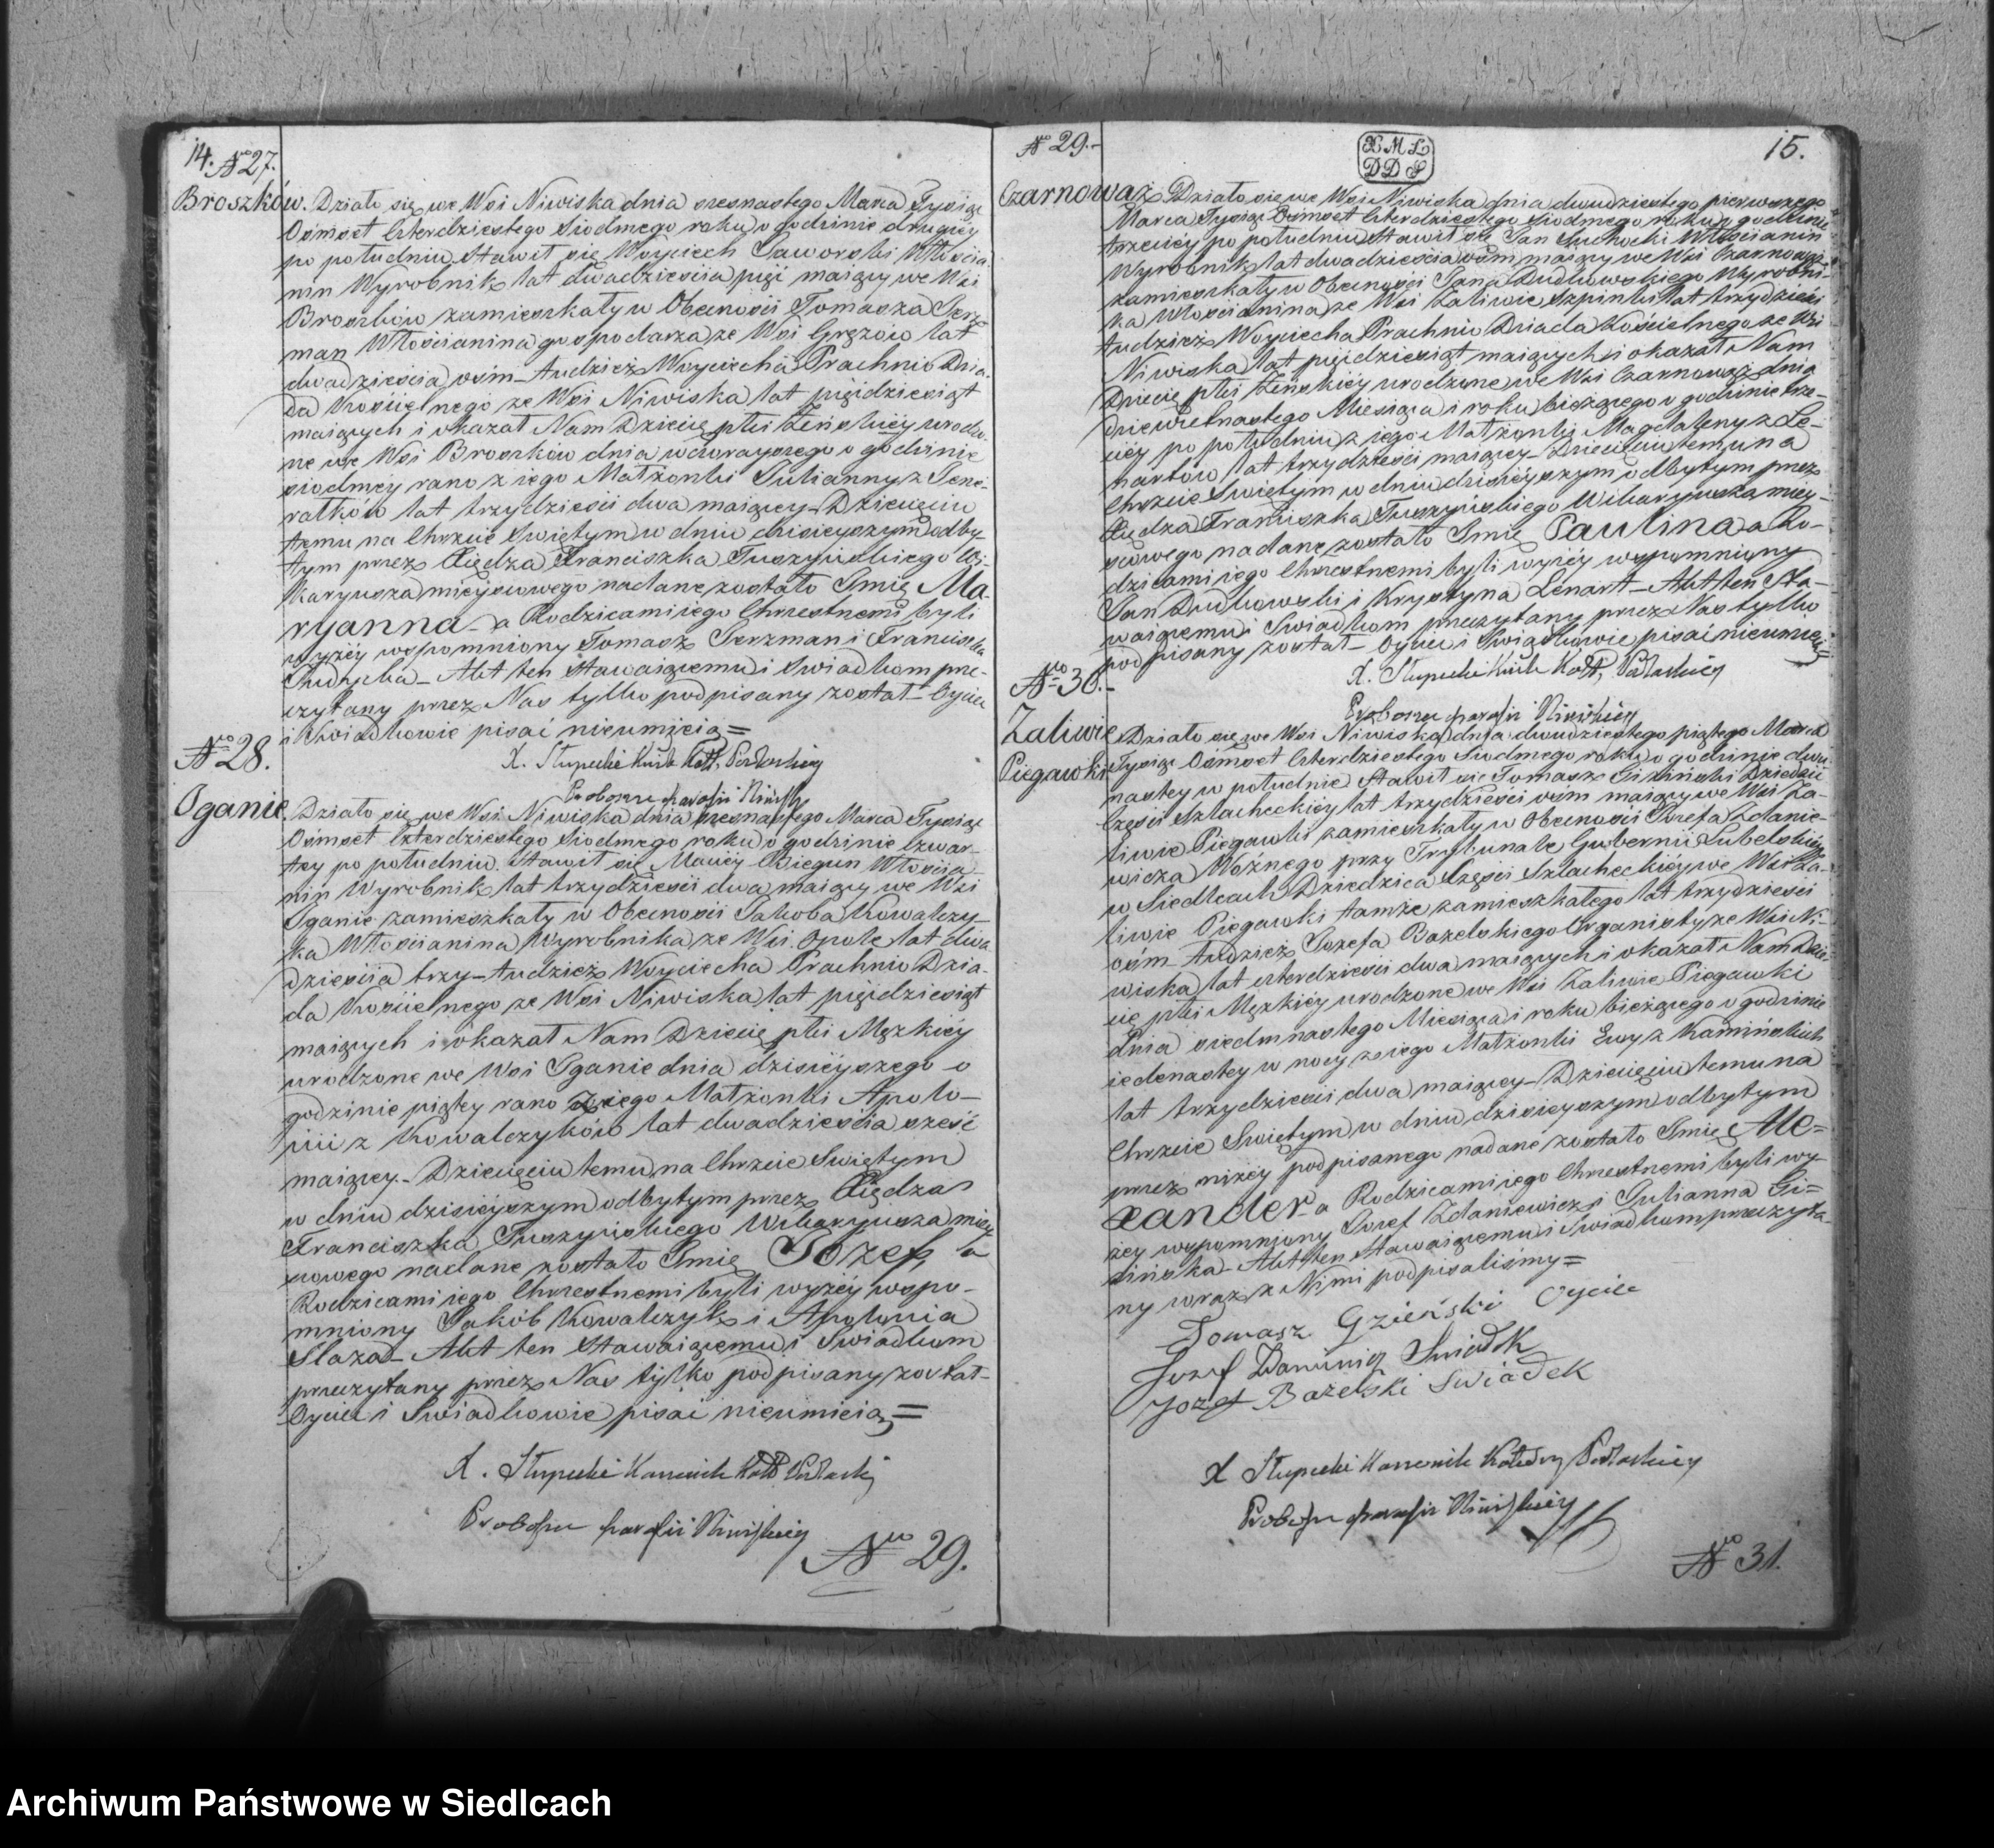 14. No 27.
Broszków. Działo się we Wsi Niwiska dnia szesnastego Marca Tysiąc
Ośmset Czterdziestego Siodmego roku o godzinie drugiey
po południu. Stawił się Woyciech Jaworski Włościa-
nin Wyrobnik lat dwadzieścia pięć maiący we Wsi
Broszków zamieszkały w Obecności Tomasza Jerz-
man Włościanina gospodarza ze Wsi Gręzów lat
dwadzieścia ośm tudzież Woyciecha Prachnio Dzia-
da Kościelnego ze Wsi Niwiska lat pięćdziesiąt
maiących i okazał Nam Dziecię płci Żeńskiéy urodzo-
ne we Wsi Broszków dnia wczorayszego o godzinie
siodmey rano z iego Małżonki Julianny z Jene-
rałków lat trzydzieści dwa maiącey - Dziecięciu
temu na Chrzcie Swiętym w dniu dzisieyszym odby-
tym przez Xiędza Franciszka Tuszyńskiego Wi-
karyusza mieyscowego nadane zostało Imię Ma-
ryanna - a Rodzicami iego Chrzestnemi byli
wyżéy wspomniony Tomasz Jerzman i Franciszka
- Akt ten stawaiącemu i Swiadkom prze-
czytany przez Nas tylko podpisany został - Oyciec
i Swiadkowie pisać nieumieią =
X. Słupecki Kan: Kate. Podlaskiey
Proboszcz parafii Niwiskiey
No 28.
Iganie. Działo się we Wsi Niwiska dnia szesnastego Marca Tysiąc
Ośmset Czterdziestego Siodmego roku o godzinie Czwar-
tey po południu. Stawił się Maciéy Biegun Włościa-
nin Wyrobnik lat trzydzieści dwa maiący we Wsi
Iganie zamieszkały w Obecności Jakoba Kowalczy-
ka Włościanina Wyrobnika ze Wsi Opole lat dwa
dzieścia trzy - tudzież Woyciecha Prachnio Dzia-
da Kościelnego ze Wsi Niwiska lat pięćdziesiąt
maiących i okazał Nam Dziecię płci Męzkiéy
urodzone we Wsi Iganie dnia dzisiéyszego o
godzinie piątey rano z iego Małżonki Apolo-
nii z Kowalczyków lat dwadzieścia sześć
maiącey - Dziecięciu temu na Chrzcie Swiętym
w dniu dzisiéyszym odbytym przez Xiędza
Franciszka Tuszyńskiego Wikaryusza miey-
scowego nadane zostało Imię Józef, a
Rodzicami iego Chrzestnemi byli wyżéy wspo-
mniony Jakób Kowalczyk i Apolonia
Slaza - Akt ten Stawaiącemu i Swiadkom
przeczytany przez Nas tylko podpisany został -
Oyciec i Swiadkowie pisać nieumieią =
X. Słupecki Kanonik Kate Podlaskiey
Proboszcz parafii Niwiskiey
No 29.
No 29.-
X M L
D D S
15.
Czarnowąż Działo się we Wsi Niwiska dnia dwudziestego pierwszego
Marca Tysiąc Ośmset Czterdziestego Siodmego roku o godzinie
trzeciéy po południu Stawił się Jan Suchocki Włościanin
Wyrobnik lat dwadzieścia ośm maiący we Wsi Czarnowąż
zamieszkały w Obecności Jana Dudkowskiego Wyrobni-
ka Włościanina ze Wsi Zaliwie Szpinki lat trzydzieści
tudzież Woyciecha Prachnio Dziada Kościelnego ze Wsi
Niwiska lat pięćdziesiąt maiących i okazał Nam
Dziecię płci Żeńskiéy urodzone we Wsi Czarnowąż dnia
dziewietnastego Miesiąca i roku bieżącego o godzinie trze-
ciéy po południu z iego Małżonki Magdaleny z Le-
nartów lat trzydzieści maiącey - Dziecięciu temu na
Chrzcie Swiętym w dniu dzisiéyszym odbytym przez
Xiędza Franciszka Tuszyńskiego Wikaryusza miey-
scowego nadane zostało Imię Paulina a Ro-
dzicami iego Chrzestnemi byli wyżéy wspomniony
Jan Dudkowski i Krystyna Lenart - Akt ten Sta-
waiącemu i Swiadkom przeczytany przez Nas tylko
podpisany został - Oyciec i Swiadkowie pisać nieumieią =
X. Słupecki Kan: Kate: Podlaskiey
Proboszcz parafii Niwiskiey
No 30.-
Zaliwie Działo się we Wsi Niwiska dnia dwudziestego piątego Marca
Piegawki Tysiąc Ośmset Czterdziestego Siodmego roku o godzinie dwu-
nastey w południe Stawił się Tomasz Dziedzic
Części Szlacheckiéy lat trzydzieści ośm maiący we Wsi Za-
liwie Piegawki zamieszkały w Obecności Józefa Zdanie-
wicza Woźnego przy Trybunale Gubernii Lubelskiéy
w Siedlcach Dziedzica Części Szlacheckiéy we Wsi Za-
liwie Piegawki tamże zamieszkałego lat trzydzieści
ośm - tudzież Jozefa Bazelskiego Organisty ze Wsi Ni-
wiska lat czterdzieści dwa maiących i okazał Nam Dzie-
cię płci Męzkiéy urodzone we Wsi Zaliwie Piegawki
dnia siedmnastego Miesiąca i roku bieżącego o godzinie
iedenastey w nocy z iego Małżonki Ewy z Kamińskich
lat trzydzieści dwa maiącey - Dziecięciu temu na
Chrzcie Swiętym w dniu dzisieyszym odbytym
przez niżéy podpisanego nadane zostało Imię Ale=
xander a Rodzicami iego Chrzestnemi byli wy-
żéy wspomniony Jozef Zdaniewicz i Julianna Gi=
zińska - Akt ten Stawaiącemu i Swiadkom przeczyta-
ny wraz z Nimi podpisaliśmy =
Tomasz Oyciec
Jozef Swiadek
Jozef Bazelski Swiadek
X Słupecki Kanonik Katedry Podlaskiey
Proboszcz parafii Niwiskiey
No 31.
Archiwum Państwowe w Siedlcach